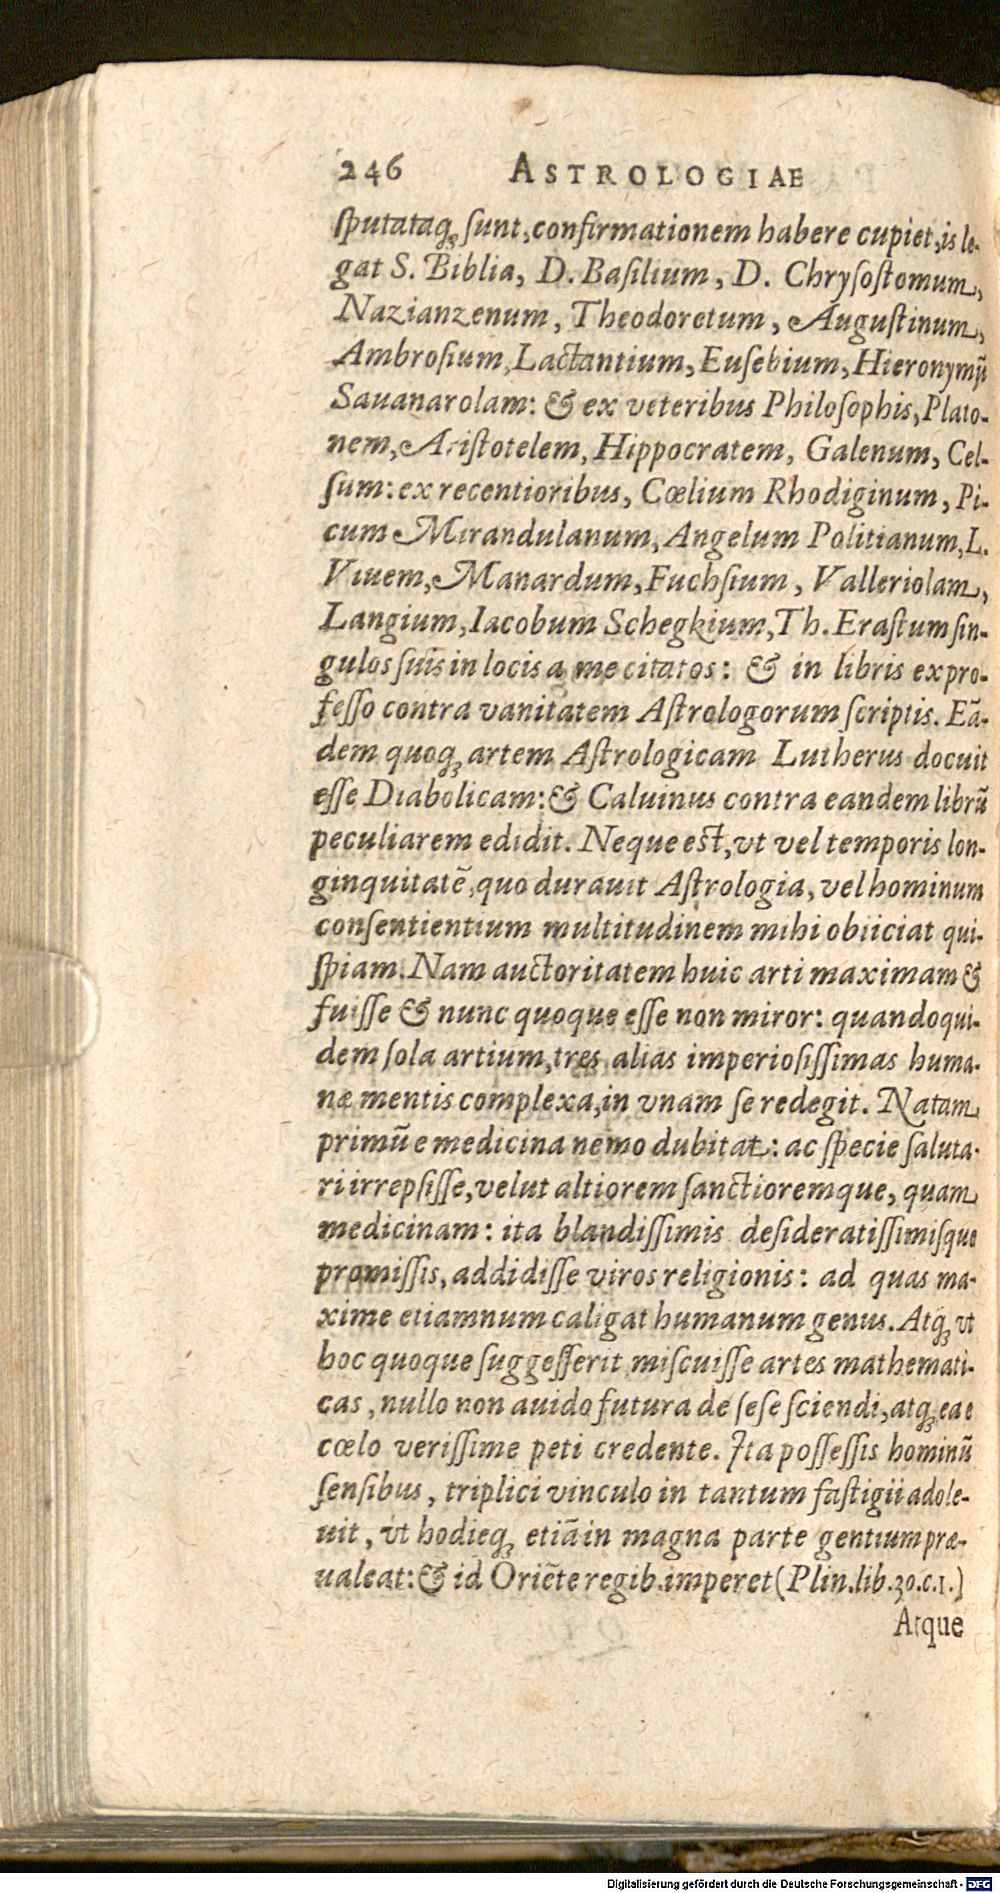 246 ASTROLOGIAE
sputataq́ꝫ sunt, confirmationem habere cupiet, is le-
gat S. Biblia, D. Basilium, D. Chrysostomum,
Nazianzenum, Theodoretum, Augustinum,
Ambrosium, Lactantium, Eusebium, Hieronymũ
Sauanarolam: & ex veteribus Philosophis, Plato-
nem, Aristotelem, Hippocratem, Galenum, Cel-
sum: ex recentioribus, Cœlium Rhodiginum, Pi-
cum Mirandulanum, Angelum Politianum, L.
Viuem, Manardum, Fuchsium, Valleriolam,
Langium, Iacobum Schegkium, Th. Erastum sin-
gulos suis in locis a me citatos: & in libris ex pro-
fesso contra vanitatem Astrologorum scriptis. Eã-
dem quoqꝫ artem Astrologicam Lutherus docuit
esse Diabolicam: & Caluinus contra eandem librũ
peculiarem edidit. Neque est, vt vel temporis lon-
ginquitatẽ, quo durauit Astrologia, vel hominum
consentientium multitudinem mihi obiiciat qui-
spiam. Nam auctoritatem huic arti maximam &
fuisse & nunc quoque esse non miror: quandoqui-
dem sola artium, tres alias imperiosissimas huma-
næ mentis complexa, in vnam se redegit. Natam
primũ e medicina nemo dubitat: ac specie saluta-
ri irrepsisse, velut altiorem sanctioremque, quam
medicinam: ita blandissimis desideratissimisque
promissis, addidisse viros religionis: ad quas ma-
xime etiamnum caligat humanum genus. Atqꝫ vt
hoc quoque suggesserit, miscuisse artes mathemati-
cas, nullo non auido futura de sese sciendi, atqꝫ ea e
cœlo verissime peti credente. Ita possessis hominũ
sensibus, triplici vinculo in tantum fastigii adole-
uit, vt hodieqꝫ etiã in magna parte gentium præ-
ualeat: & id Oriẽte regib. imperet (Plin. lib. 30. c. 1.)
Atque
Digitalisierung gefördert durch die Deutsche Forschungsgemeinschaft - DFG